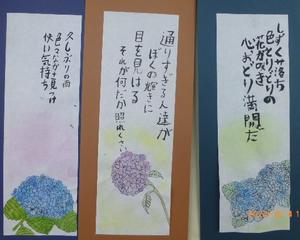 しずく落ち
色とりどりの
花がさき
心おどり満開だ
通りすぎる人達が
ぼくの輝きに
目を見はる
それが何だか照れくさい
久しぶりの雨
色とながさ見つけ
快い気持ち